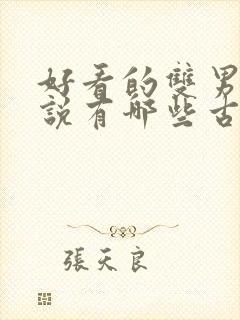 好看的雙男
說有哪些古
張天良